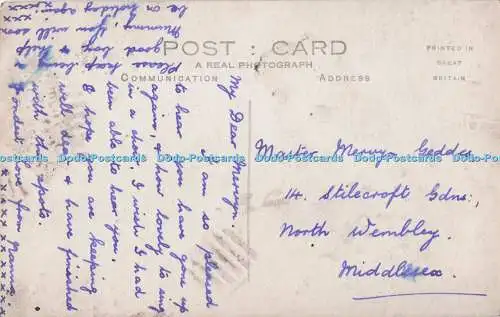 POST : CARD
A REAL PHOTOGRAPH
COMMUNICATION
ADDRESS
PRINTED IN
GREAT
BRITAIN
My Dear Mervyn
I am so pleased
to hear you have gone up
again, & how lovely to sing
in a choir, I wish I had
been able to hear you.
I hope you are keeping
well dear & have finished
with the spots.
Fondest love from Nannie.
x x x x x x x x x x x x
Please keep being a
good boy & help
Mummy, you will soon
be on holiday again xxx
xxx
Master Mervyn Geddes
14. Stilecroft Gdns:
North Wembley.
Middlesex
Dodo-Postcards Dodo-Postcards Dodo-Postcards Dodo-Postcards
Dodo-Postcards Dodo-Postcards Dodo-Postcards Dodo-Postcards